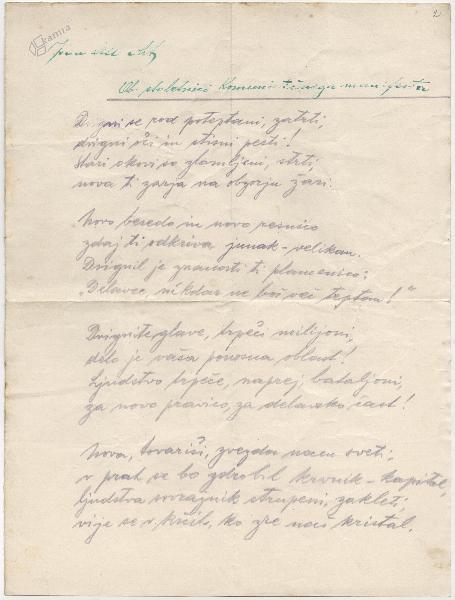 kamra
2
Ob stoletnici Komunističnega manifesta
Dvigni se rod poteptani, zatrti,
dvigni oči in stisni pesti!
Stari okovi so zlomljeni, strti,
nova ti zarja na obzorju žari.
Novo besedo in novo resnico
zdaj ti odkriva junak-velikan.
Dvignil je znanosti ti plamenico:
"Delavec, nikdar ne boš več teptan!"
Dvignite glave, trpeči milijoni,
delo je vaša ponosna oblast!
Ljudstvo trpeče, naprej, bataljoni,
za novo pravico, za delavsko čast!
Nova, tovariši, zvezda nam sveti,
v prah se bo zdrobil krvnik-kapital,
ljudstva sovražnik strupeni, zakleti,
vije se v krčih, ko zre naš kristal.